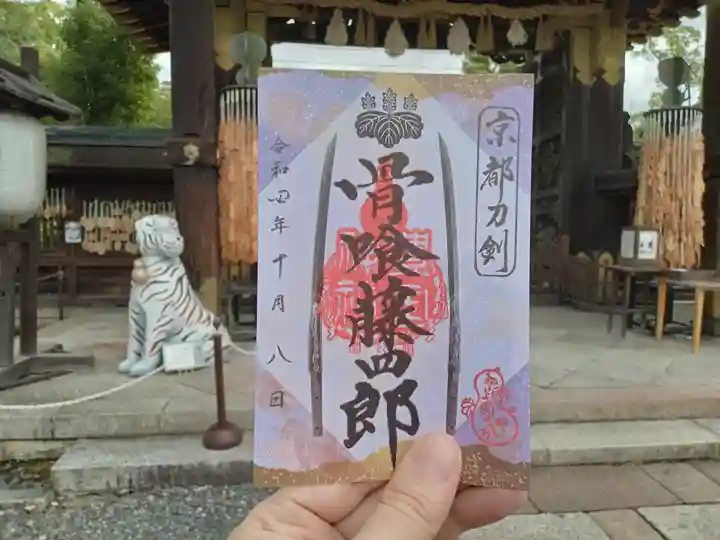 京都刀剣
骨喰藤四郎
令和四年十月八日